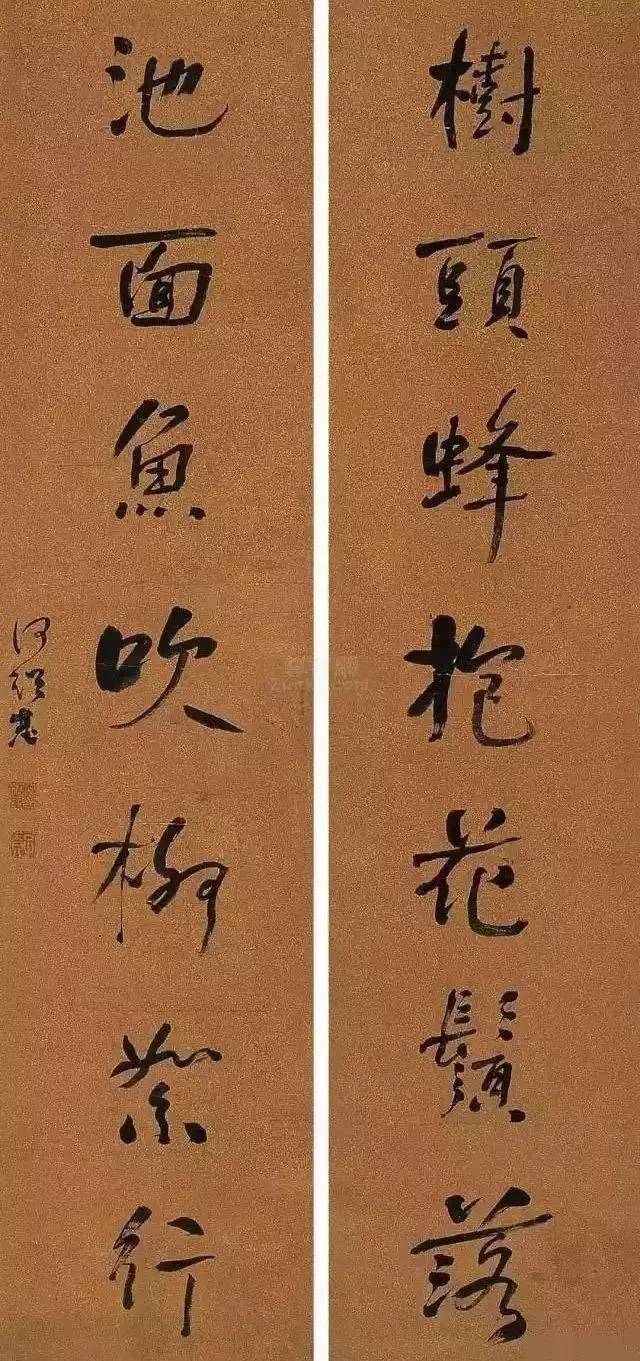 樹頭蜂抱花鬚落
池面魚吹柳絮行
何紹基